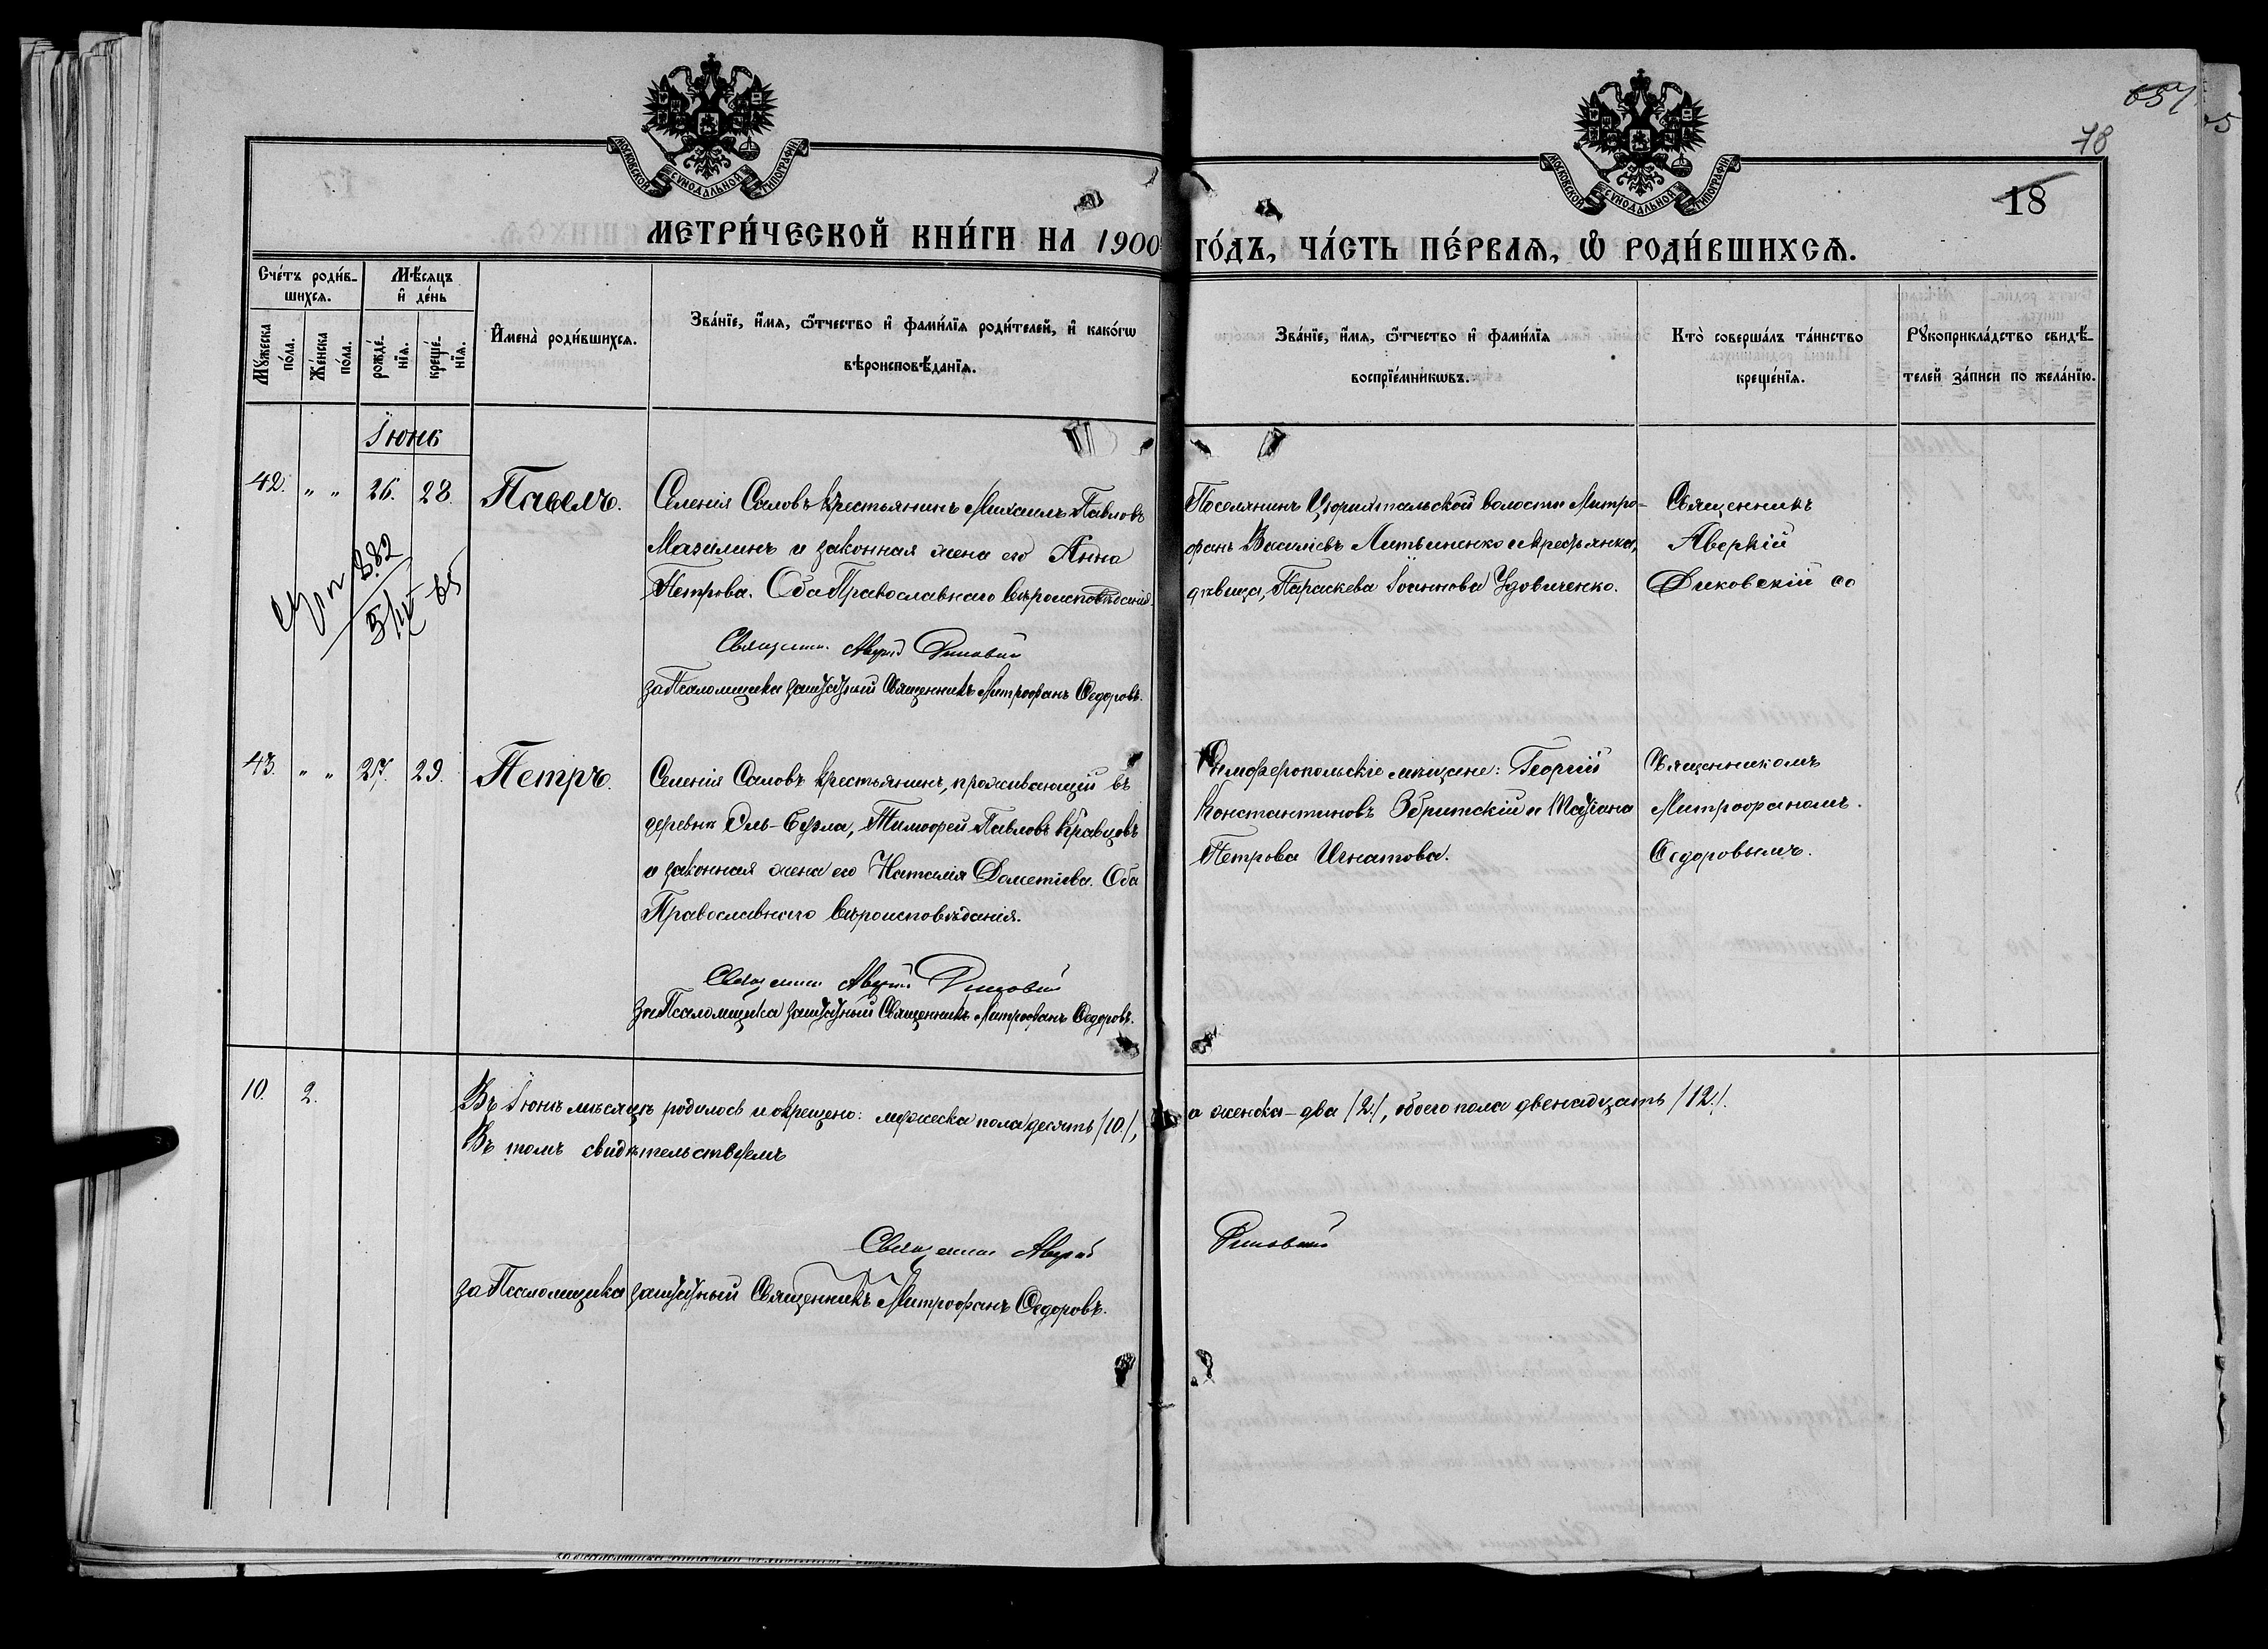 МОСКОВСКОЙ СѴНОДАЛЬНОЙ ТИПОГРАФІИ
МОСКОВСКОЙ СѴНОДАЛЬНОЙ ТИПОГРАФІИ
78
18
МЕТРИ́ЧЕСКОЙ КНИ́ГИ НА 1900 ГО́ДЪ, ЧА́СТЬ ПЕ́РВАЯ, Ѽ РОДИ́ВШИХСЯ.
Сче́тъ роди́в-
шихся.
Мѣ́сяцъ
и҆ де́нь
Мꙋ́жеска
по́ла.
Же́нска
по́ла.
рожде́-
нїя.
креще́-
нїя.
И҆мена̀ роди́вшихся.
Зва́нїе, и҆́мя, ѻ҆́тчество и҆ фами́лїя роди́телей, и҆ како́гѡ
вѣроисповѣ́данїя.
Зва́нїе, и҆́мя, ѻ҆́тчество и҆ фами́лїя
воспрїе́мникѡвъ.
Кто̀ соверша́лъ та́инство
креще́нїя.
Рꙋкоприкла́дство свидѣ́-
телей за́писи по жела́нїю.
Іюнь
42. „ „ 26. 28. Павелъ.
Селенія Саловъ крестьянинъ Михаилъ Павловъ
Мазилинъ и законная жена его Анна
Петрова. Оба Православнаго вѣроисповѣданія.
Священник Аверкій Диковскій
за Псаломщика заштатный Священникъ Митрофанъ Ѳедоровъ.
Поселянинъ Цюрихтальской волости Митро-
фанъ Василіевъ Литвиненко и крестьянка,
дѣвица, Параскева Іоаннова Удовиченко.
Священникъ
Аверкій
Диковскій со
382
5/IV 65
43. „ „ 27. 29. Петръ.
Селенія Саловъ крестьянинъ, проживающій въ
деревнѣ Оль-Бузла, Тимофей Павловъ Кравцовъ
и законная жена его Наталія Дометіева. Оба
Православнаго вѣроисповѣданія.
Священник Аверкій Диковскій
за Псаломщика заштатный Священникъ Митрофанъ Ѳедоровъ.
Симферопольскіе мѣщане: Георгій
Константиновъ Збритскій и Татіана
Петрова Игнатова.
Священникомъ
Митрофаномъ
Ѳедоровымъ.
10. 2. Въ Іюнѣ мѣсяцѣ родилось и окрещено: мужеска пола десять /10./, а женска – два /2./, обоего пола двенадцать /12./.
Въ томъ свидѣтельствуемъ
Священник Аверкій Диковскій
за Псаломщика заштатный Священникъ Митрофанъ Ѳедоровъ.